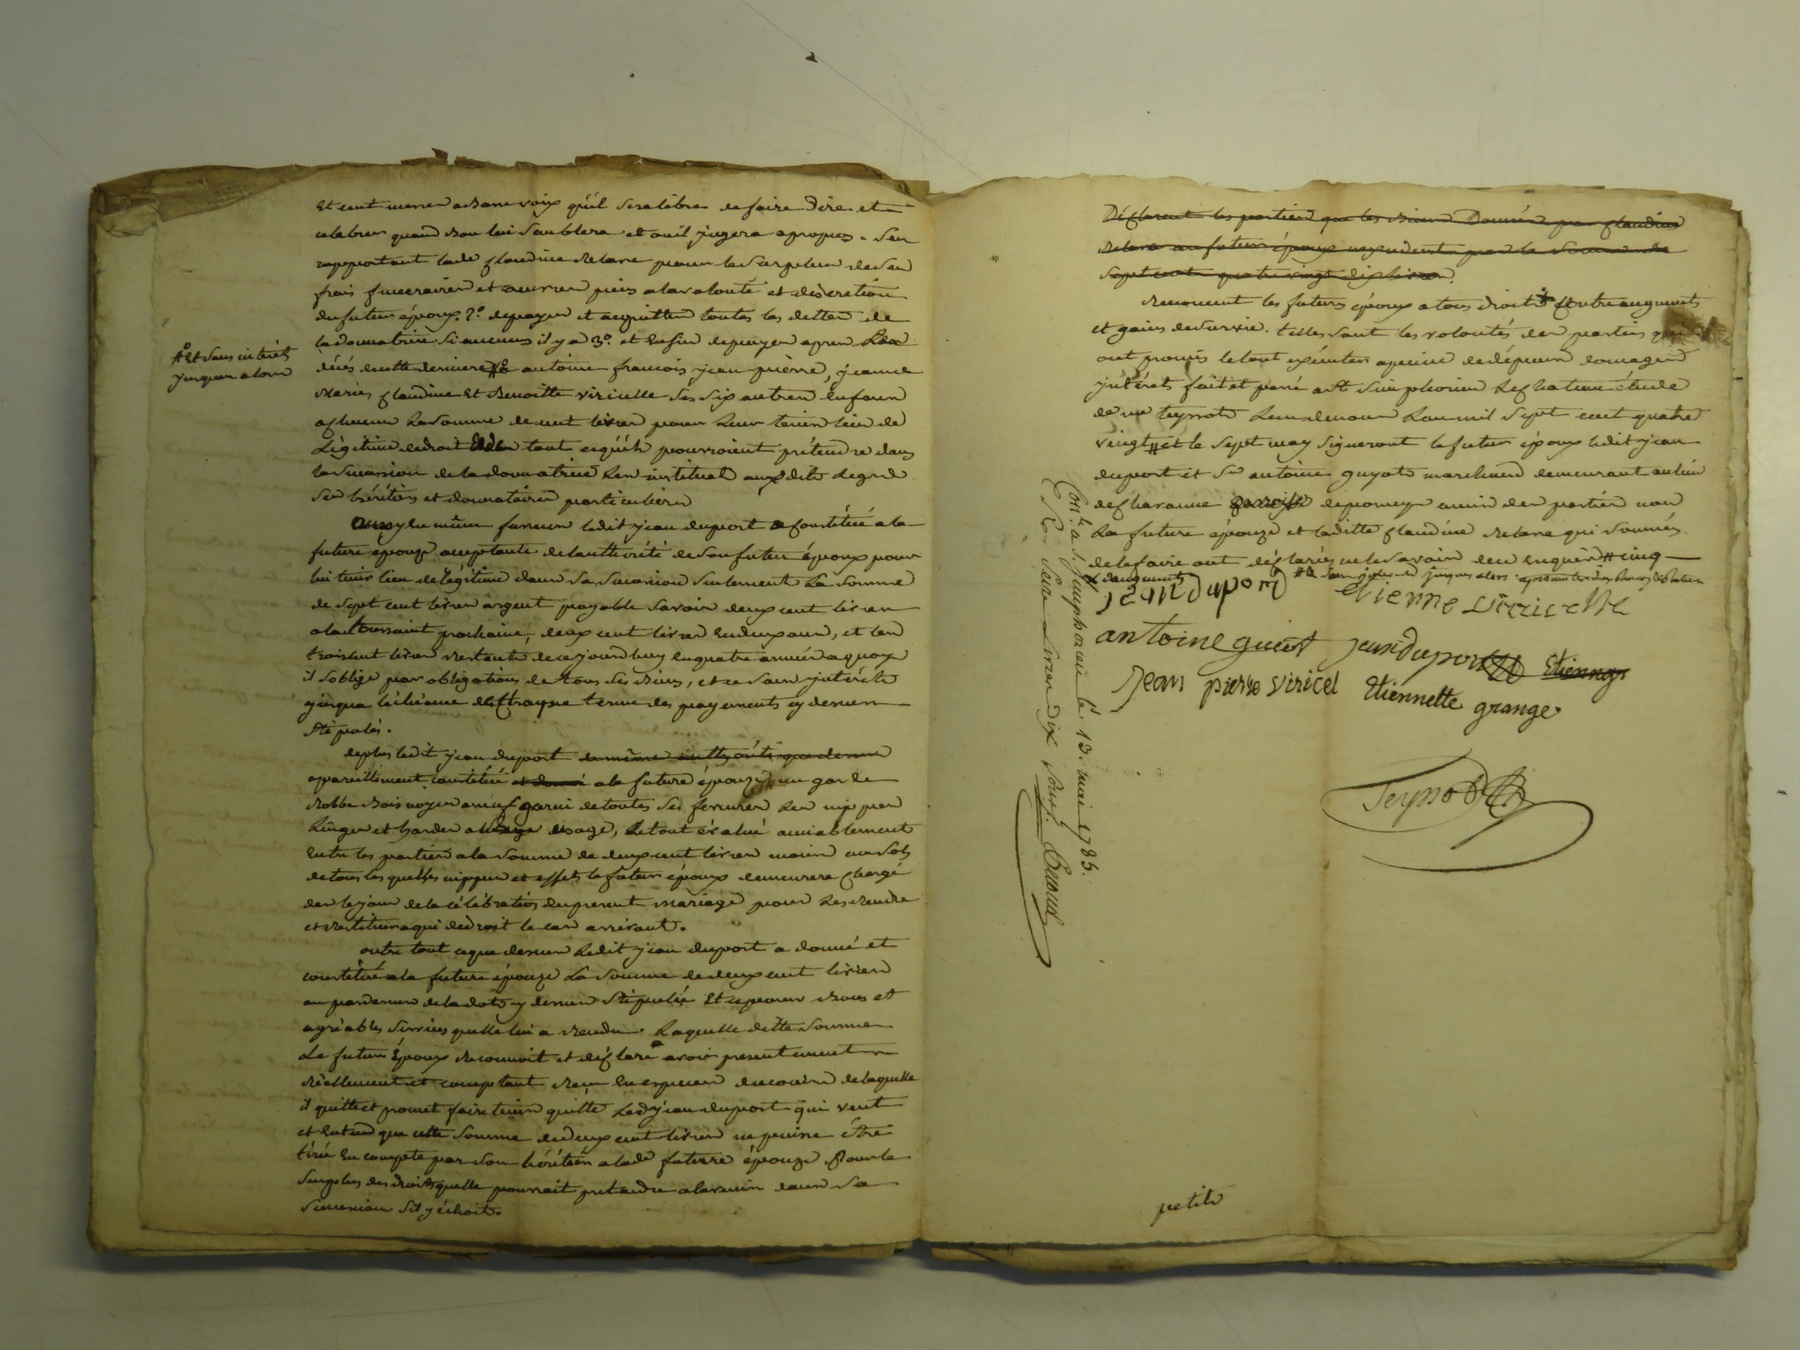 et cent messes a basse voix qu'il sera libre de faire dire et
celebrer quand bon lui semblera et ou il jugera apropos. S'en
rapportant lade claudine pour le surplus de ses
frais funeraires et œuvres pies a la volonté et discretion
du futur époux. 2º. de payer et acquitter toutes les dettes de
la donatrice si aucunes il y a 3º. et enfin de payer apres le
décés de cette derniere a antoine francois jean pierre, jeanne
Marie, claudine et Benoitte viricelle ses six autres enfans
a chacun la somme de cent livres pour leur tenir lieu de
Légitime de droit et de tout ce qu'ils pourroient prétendre dans
la succession de la donatrice les instituant auxdits Legs
ses héritiers et donnataires particuliers
et sans intérêts
jusques alors
Aussy en même faveur ledit jean duport a constitué a la
future épouze acceptante de l'authorité de son futur époux pour
lui tenir lieu de légitime dans sa succession seulement la somme
de sept cent livres argent payable savoir deux cent livres
a la toussaint prochaine, deux cent livres en deux ans, et les
trois cent livres restants de ce jourd'huy en quatre années a quoy
il s'oblige par obligations de tous ses biens, et ce sans intérêts
jusqua l'échéance de chaque terme des payements cy dessus
stipulés.
de plus ledit jean duport de même authorité que dessus
a pareillement constitué et donné a la future épouze, un garde
Robbe Bois noyer garni de toutes ses ferrures les nippes
Linges et hardes a son usage, le tout évalué amiablement
entre les parties a la somme de deux cent livres moins un sols
de tous lesquelles nippes et effets le futur époux demeurera chargé
des le jour de la célébration du present mariage pour les rendre
et restituer a qui de droit le cas arrivant.
outre tout ce que dessus ledit jean duport a donné et
constitué a la future épouze la somme de deux cent livres
au par dessus de la dot cy dessus stipulée et ce pour bons et
agréables services quelle lui a rendu. Laquelle ditte somme
Le futur Epoux reconnoit et déclare avoir presentement
réellement et comptant reçu en especes de cours de laquelle
il quitte et promet faire tenir quitte led. jean duport qui veut
et entend que cette somme de deux cent livres ne puisse être
tirée en compte par son héritier a lade future épouze pour le
surplus des droits quelle pourrait pretendre a l'avenir dans sa
succession s'il y échoit.
Déclarent les parties que les biens Donnés par claudine
au futur époux n'excedent pas la somme de
sept cent quatrevingt dix livres.
renoncent les futurs époux a tous droits et autre augments
et gains de survie. telles sont les volontés des parties
ont promis le tout exécuter a peine de depens domages
intérets fait et passé a St Simphorien le chateau étude
de me teyssot Lundenous L'an mil sept cent quatre
vingt et le sept may signeront le futur époux ledit jean
duport et Sr antoine guyot marchand demeurant au lieu
de chavanne parroisse de pomeys amis des parties non
La future épouze et laditte claudine qui sommés
de le faire ont déclarés ne le savoir de ce enquis cinq
jean duport
etienne viricelle
antoine guiot
jean duport
Etienne
jean pierre viricel
Etiennette grange
Teyssot
Conlé. a St. simphorien le 13. mai 1785.
R. Seize Livres dix sous.
petite